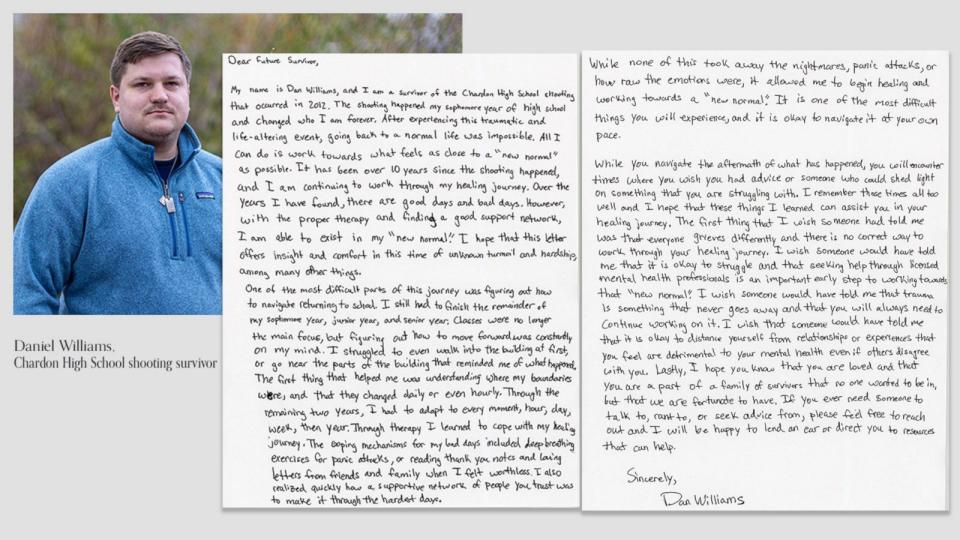 Daniel Williams,
Chardon High School shooting survivor
Dear Future Survivor,
My name is Dan Williams, and I am a survivor of the Chardon High School shooting
that occurred in 2012. The shooting happened my sophomore year of high school
and changed who I am forever. After experiencing this traumatic and
life-altering event, going back to a normal life was impossible. All I
can do is work towards what feels as close to a "new normal"
as possible. It has been over 10 years since the shooting happened,
and I am continuing to work through my healing journey. Over the
years I have found, there are good days and bad days. However,
with the proper therapy and finding a good support network,
I am able to exist in my "new normal." I hope that this letter
offers insight and comfort in this time of unknown turmoil and hardship,
among many other things.
One of the most difficult parts of this journey was figuring out how
to navigate returning to school. I still had to finish the remainder of
my sophomore year, junior year, and senior year. Classes were no longer
the main focus, but figuring out how to move forward was constantly
on my mind. I struggled to even walk into the building at first,
or go near the parts of the building that reminded me of what happened.
The first thing that helped me was understanding where my boundaries
were, and that they changed daily or even hourly. Through the
remaining two years, I had to adapt to every moment, hour, day,
week, then year. Through therapy I learned to cope with my healing
journey. The coping mechanisms for my bad days included deep breathing
exercises for panic attacks, or reading thank you notes and loving
letters from friends and family when I felt worthless. I also
realized quickly how a supportive network of people you trust was
to make it through the hardest days.
While none of this took away the nightmares, panic attacks, or
how raw the emotions were, it allowed me to begin healing and
working towards a "new normal." It is one of the most difficult
things you will experience, and it is okay to navigate it at your own
pace.
While you navigate the aftermath of what has happened, you will encounter
times where you wish you had advice or someone who could shed light
on something that you are struggling with. I remember those times all too
well and I hope that these things I learned can assist you in your
healing journey. The first thing that I wish someone had told me
was that everyone grieves differently and there is no correct way to
work through your healing journey. I wish someone would have told
me that it is okay to struggle and that seeking help through licensed
mental health professionals is an important early step to working towards
that "new normal." I wish someone would have told me that trauma
is something that never goes away and that you will always need to
continue working on it. I wish that someone would have told me
that it is okay to distance yourself from relationships or experiences that
you feel are detrimental to your mental health even if others disagree
with you. Lastly, I hope you know that you are loved and that
you are a part of a family of survivors that no one wanted to be in,
but that we are fortunate to have. If you ever need someone to
talk to, rant to, or seek advice from, please feel free to reach
out and I will be happy to lend an ear or direct you to resources
that can help.
Sincerely,
Dan Williams